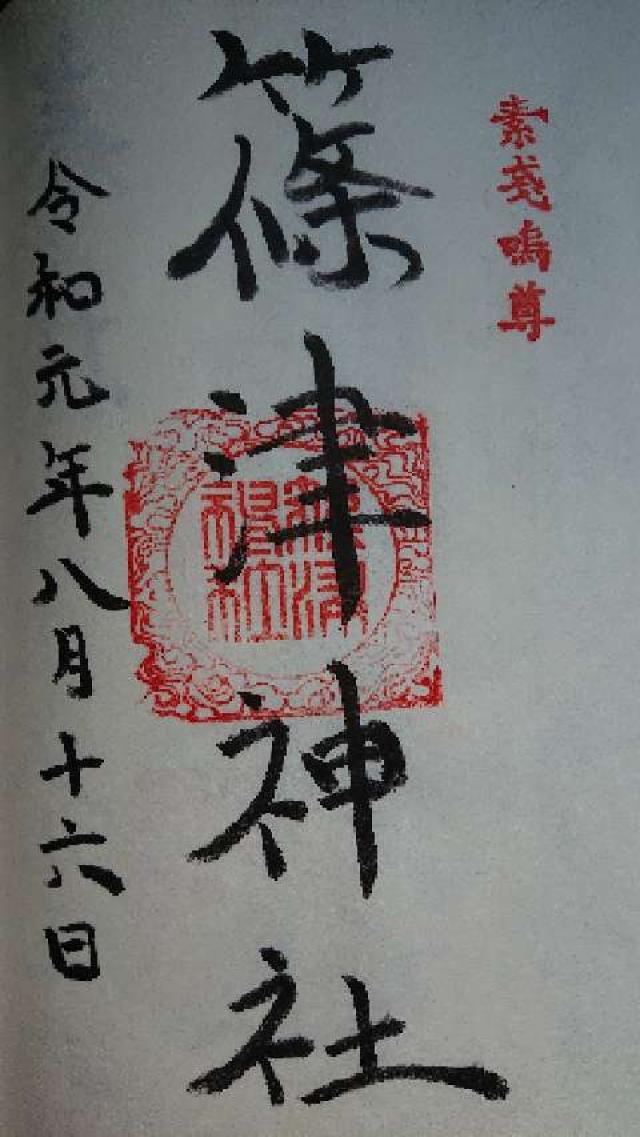 素戔嗚尊
篠津神社
篠津神社
令和元年八月十六日